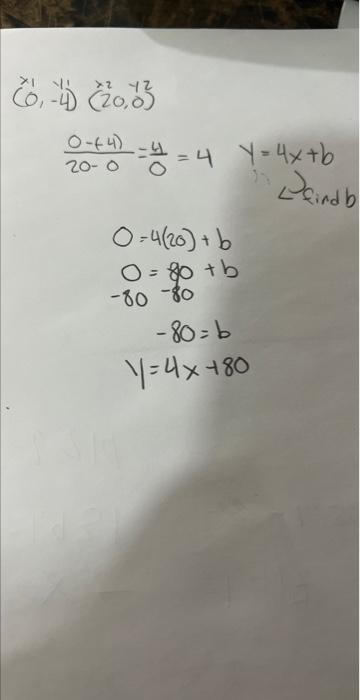 x1 y1 x2 y2
(0, -4) (20,0)
0-(-4)/20-0 = 4/0 = 4 y=4x+b
find b
0=4(20)+b
0=80+b
-80 -80
-80=b
y=4x+80